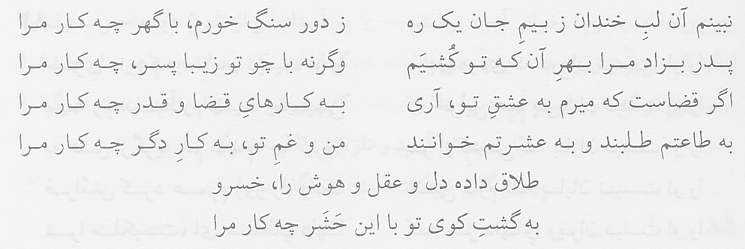 نبینم آن لبِ خندان ز بیمِ جان یک ره ز دور سنگ خورم، با گهر چه کار مرا
پدر بزاد مرا بهرِ آن که تو کُشیَم وگرنه با چو تو زیبا پسر، چه کار مرا
اگر قضاست که میرم به عشقِ تو، آری به کارهایِ قضا و قدر چه کار مرا
به طاعتم طلبند و به عشرتم خوانند من و غمِ تو، به کارِ دگر چه کار مرا
طلاق داده دل و عقل و هوش را، خسرو
به گشتِ کوی تو با این حَشَر چه کار مرا